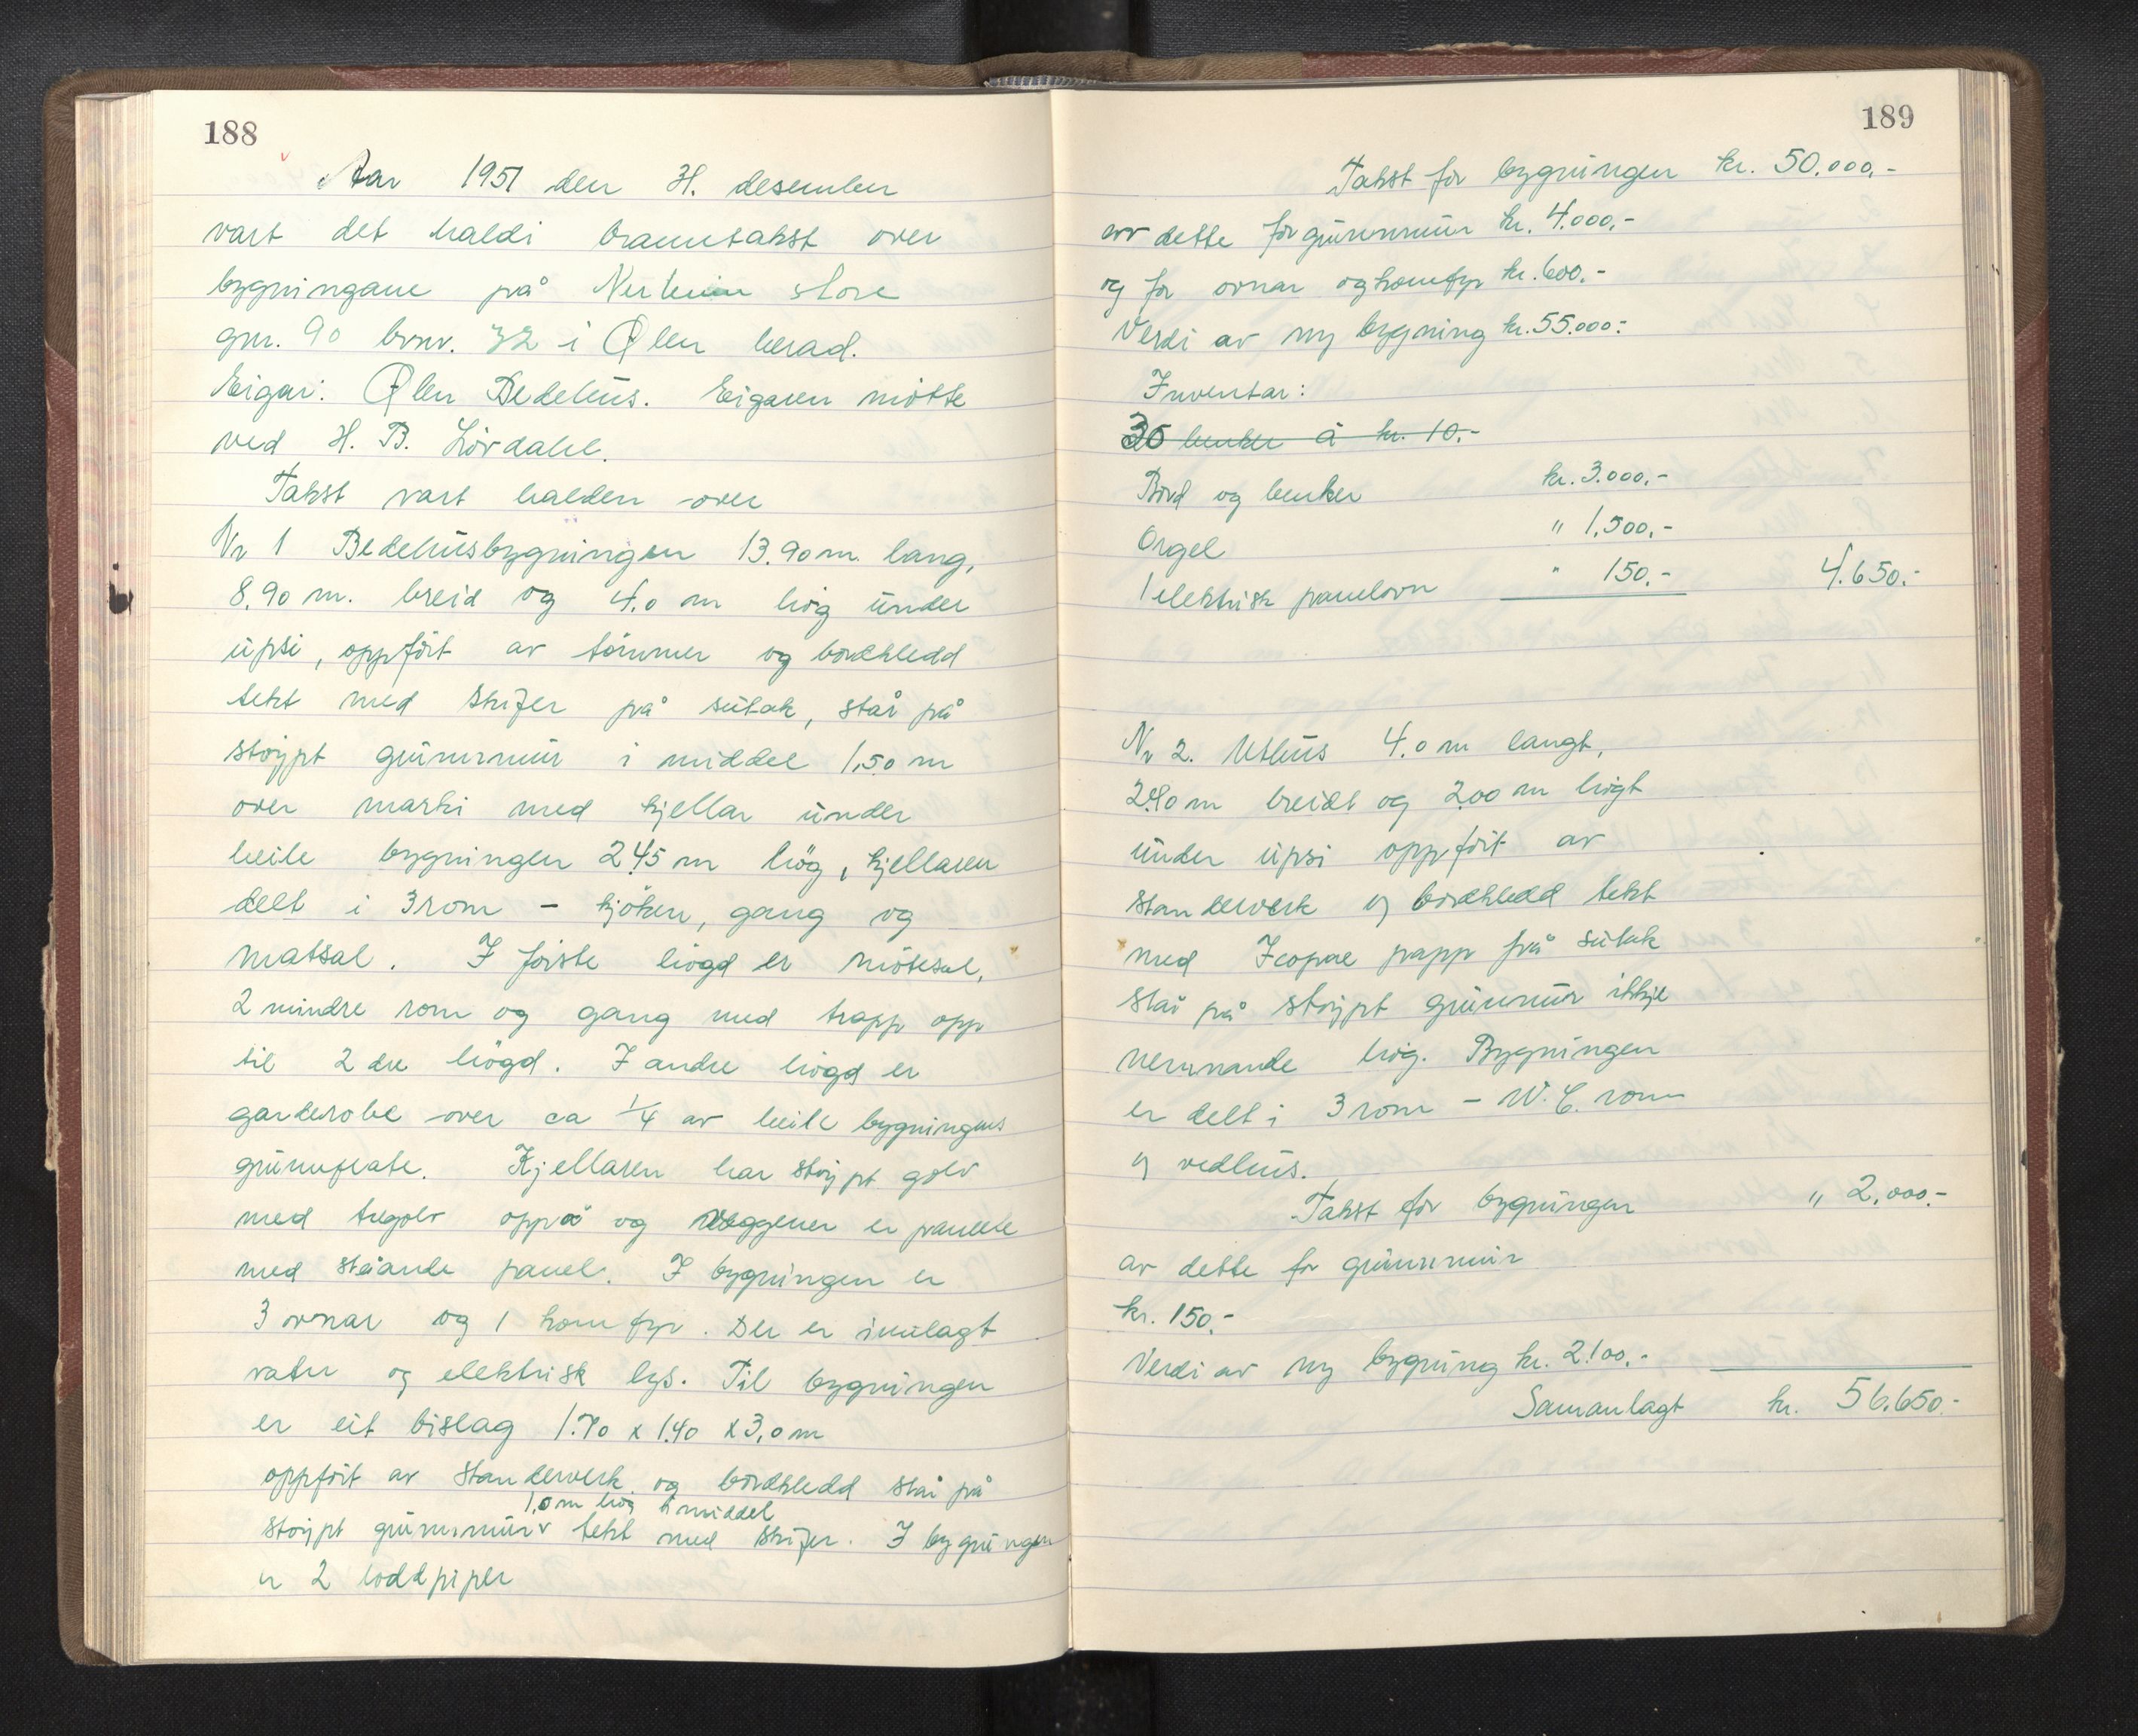 188
Aar 1951 den 4. desember
vart det haldi branntakst over
bygningane på Nerheim store
gnr. 90 brnr. 32 i Ølen herad.
Eigar: Ølen Bedehus. Eigaren møtte
ved H. B. Lørdahl.
Takst vart halden over
Nr 1 Bedehusbygningen 13.90 m. lang,
8.90 m. breid og 4.0 m høg under
upsi, oppført av tømmer og bordkledd
tekt med skifer på sutak, står på
støypt grunnmur i middel 1,50 m
over marki med kjellar under
heile bygningen 2.45 m høg, kjellaren
delt i 3 rom - kjøken, gang og
matsal. I første høgd er møtesal,
2 mindre rom og gang med trapp opp
til 2 dre høgd. I andre høgd er
garderobe over ca 1/4 av heile bygningens
grunnflate. Kjellaren har støypt golv
med tregolv oppå og veggener er panelte
med ståande panel. I bygningen er
3 ovnar og 1 komfyr. Der er innlagt
vatn og elektrisk lys. Til bygningen
er eit bislag 1.70 x 1.40 x 3,0 m
oppført av standerverk og bordkledd står på
1,0 m høg i middel
støypt grunnmur v tekt med skifer. I bygningen
er 2 loddpiper
189
Takst for bygningen kr. 50.000,-
av dette for grunnmur kr. 4.000,-
og for ovnar og komfyr kr. 600.-
Verdi av ny bygning kr. 55.000:-
Inventar:
30 benker á kr. 10.-
Bord og benker kr. 3.000,-
Orgel " 1,500,-
1 elektrisk panelovn " 150.- 4.650.-
Nr 2. Uthus 4.0 m langt,
2.40 m breidt og 2.00 m høgt
under upsi oppført av
standerverk og bordkledd tekt
med Icopal papp på sutak
står på støypt grunnmur ikkje
nemnande høg. Bygningen
er delt i 3 rom - W.C. rom
og vedhus.
Takst for bygningen " 2.000.-
av dette for grunnmur
kr. 150.-
Verdi av ny bygning kr. 2100.-
Samanlagt kr. 56.650.-